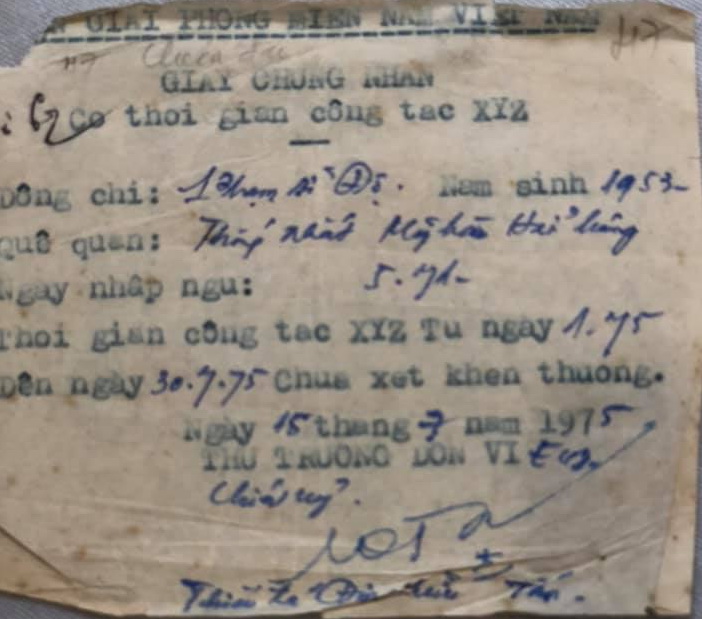 GIAI PHONG MIEN NAM VIET NAM
GIAY CHUNG NHAN
Co thoi gian công tac XYZ
Dông chi: Phạm sĩ Nam sinh 1953
Quê quan: Thống nhất Mỹ hào Hải hưng
Ngay nhâp ngu: 5.71
Thoi gian công tac XYZ Tu ngay 1.75
Dên ngày 30.7.75 Chua xet khen thuong.
Ngày 15 thang 7 nam 1975
THU TRUONG DON VI
Chính uỷ.
Thiếu tá